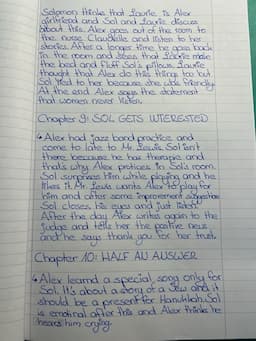 Solomon thinks that Laurie is Alex
girlfriend and Sol and Laurie discuss
about this. Alex goes out of the room to
the nurse Claudelle and listen to her
stories. After a longer time he goes back
in the room and sees that Laurie make
the bed and fluff Sol's pillows. Laurie
thought that Alex do this things too but
Sol lied to her because she was friendly.
At the end Alex says the statement
that women never listen.
Chapter 9: SOL GETS INTERESTED
Alex had jazz band practice and
come to late to Mr. Lewis. Sol isn't
there because he has therapie and
that's why Alex pratices in Sol's room.
Sol surprises him while playing and he
likes it. Mr. Lewis wants Alex to play for
him and after some improvement suggestion
Sol closes his eyes and just listen.
After the day Alex writes again to the
judge and tells her the positive news
and he says thank you for her trust.
Chapter 10: HALF AN ANSWER
Alex learnd a special song only for
Sol. It's about a story of a Jew and it
should be a present for Hanukkah. Sol
is emotinal after this and Alex thinks he
hears him crying.